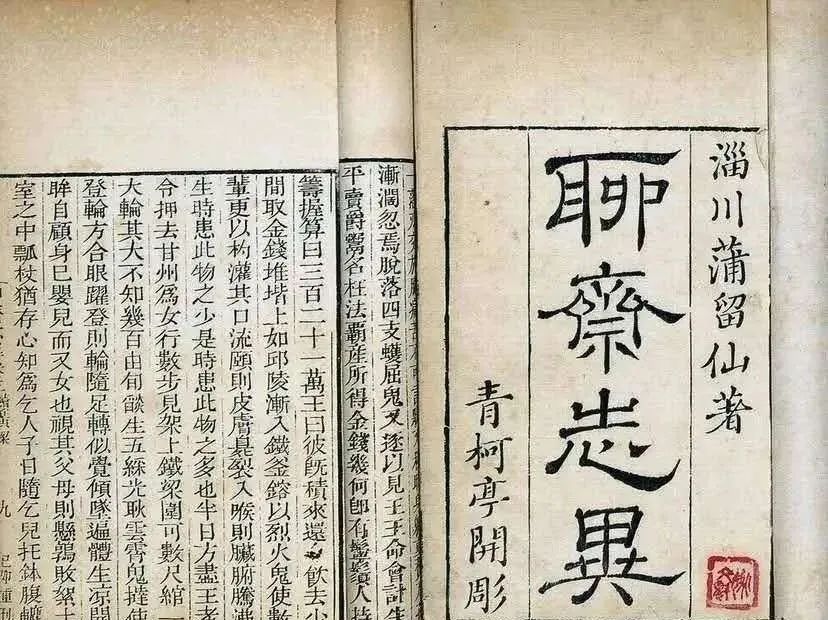 淄川蒲留仙著
聊齋志異
青柯亭開彫
漸濶忽焉脫落四支蠖屈鬼又逐以見王王命會計生
平賣爵鬻名枉法霸產所得金錢幾何卽有鬡鬚人持
籌握算曰三百二十一萬王曰彼旣積來還 飮去少
間取金錢堆堦上如邱陵漸入鐵釜鎔以烈火鬼使數
輩更以杓灌其口流頤則皮膚臭裂入喉則臟腑騰沸
生時患此物之少是時患此物之多也半日方盡王者
令押去甘州爲女行數步見架上鐵梁圍可數尺綰一
大輪其大不知幾百由旬燄生五綵光耿雲霄鬼撻使
登輪方合眼躍登則輪隨足轉似覺傾墜遍體生凉開
眸自顧身已嬰兒而又女也視其父母則懸鶉敗絮土
室之中瓢杖猶存心知爲乞人子日隨乞兒托鉢腹轆
九